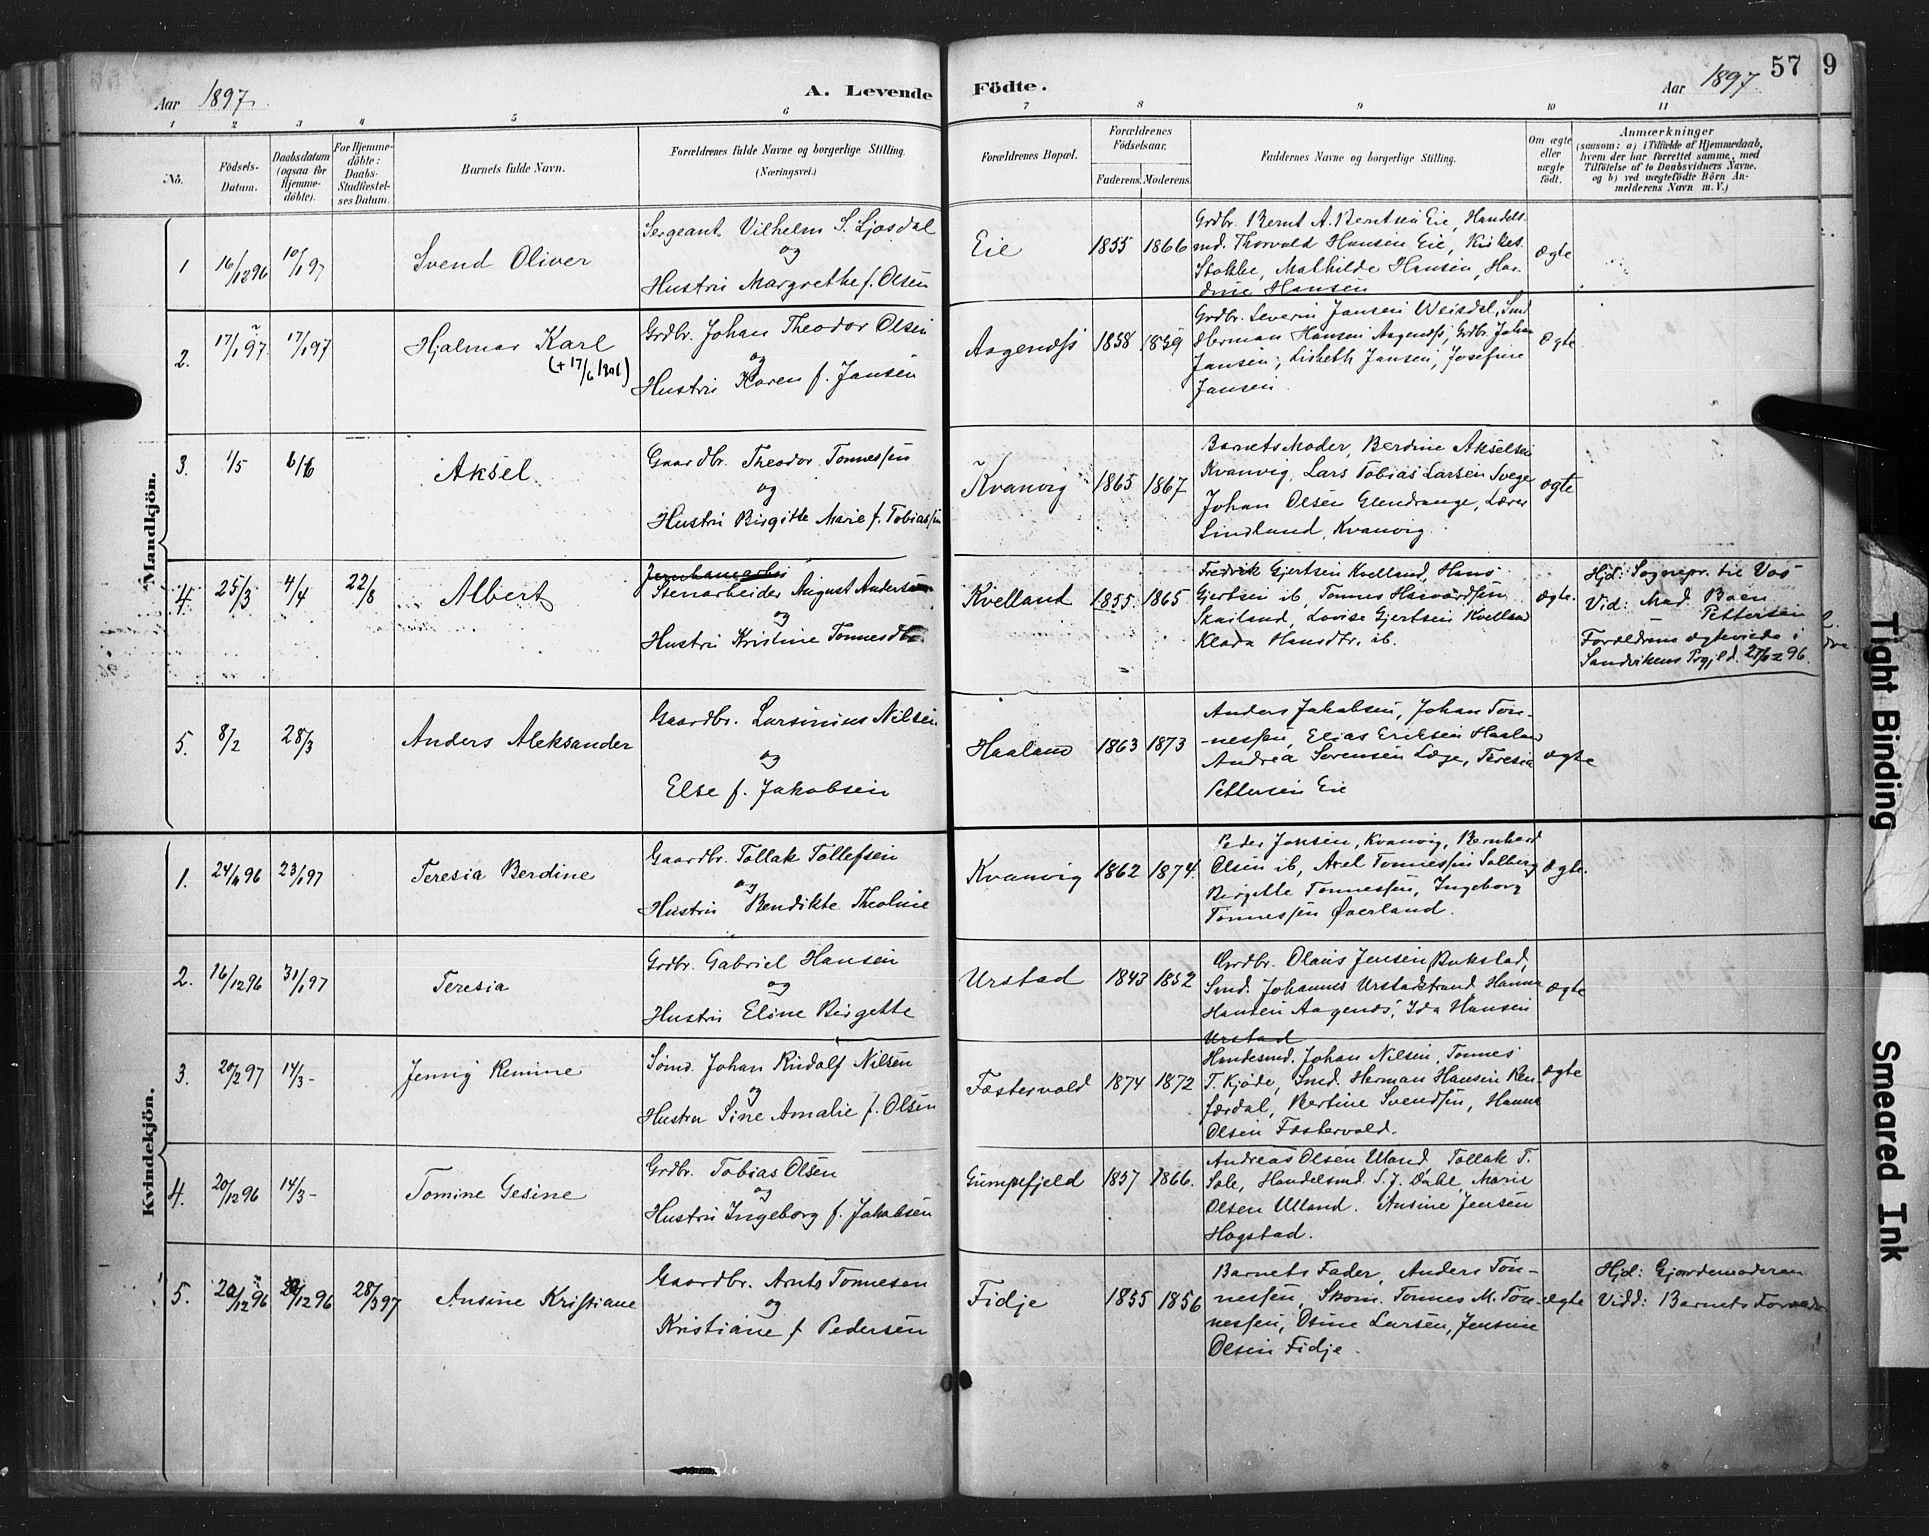 Aar 1897.
A. Levende
Födte.
Aar 1897.
57
9
1 2 3 4 5 6 7 8 9 10 11
No.
Födsels-
Datum.
Daabsdatum
(ogsaa for
Hjemme-
döbte).
For Hjemme-
döbte:
Daabs-
Stadfæstel-
ses Datum.
Barnets fulde Navn.
Forældrenes fulde Navne og borgerlige Stilling.
(Næringsvei.)
Forældrenes Bopæl.
Forældrenes
Födselsaar.
Faderens.
Moderens.
Faddernes Navne og borgerlige Stilling.
Om ægte
eller
uægte
födt.
Anmærkninger
(saasom: a) i Tilfælde af Hjemmedaab,
hvem der har forrettet samme, med
Tilföielse af to Daabsvidners Navne.
og b) ved uægtefödte Börn An-
melderens Navn m. V.)
Mandkjön.
1 16/12 96 10/1 97
Svend Oliver
Sergeant Vilhelm S. Ljosdal
og
Hustru Margrethe f. Olsen
Eie 1855 1866
Grdbr. Bernt A. Berntsen Eie, Handels-
md. Thorvald Hansen Eie, Kirkes.
Stokke, Mathilde Hansen, Har-
dine Hansen
Ægte
2. 17/1 97. 17/1 97
Hjalmar Karl
(+ 17/6 1901)
Grdbr. Johan Theodor Olsen
og
Hustru Karen f. Jansen
Aagenæss 1858 1859
Grdbr. Severin Jansen Weisdal, Smd
Herman Hansen Aagenæss, Grdbr. Johan
Jansen, Lisbeth Jansen, Josefine
Jansen.
Ægte
3. 1/5 6/6
Aksel.
Gaardbr. Theodor Tønnessen
og
Hustru Birgitte Marie f. Tobiassen
Kvanvig 1865 1867
Barnets Moder, Berdine Akselsen
Kvanvig, Lars Tobias Larsen Svege
Johan Olsen Glendrange, Lærer
Lindland, Kvanvig.
ægte
4. 25/3 4/4 22/8
Albert
Stenarbeider August Andersen
og
Hustru Kristine Tønnesdtr
Kvelland 1855. 1865
Fredrik Gjertsen Kvelland, Hans
Gjertsen ib, Tønnes Haivordsen
Skailand, Lovise Gjertsen Kvelland
Klada Hansdtr. ib.
ægte.
Hjd: Sognepr. til Vos
Vid: Mad. Boen
Pettersen
Forældrene ægteviede i
Sandvikens Prgjld. 27/12 96.
5. 8/2 28/3
Anders Aleksander
Gaardbr. Larsinius Nilsen
og
Else f. Jakobsen
Haaland 1863 1873
Anders Jakobsen, Johan Tøn-
-nessen, Elias Eriksen Haaland
Andrea Sørensen Lage, Teresia
Pettersen Eie
ægte
Kvindekjön.
1. 24/11 96 23/1 97
Teresia Berdine
Gaardbr. Tollak Tollefsen
og
Hustru Bendikte Theoline
Kvanvig 1862 1874.
Peder Jansen, Kvanvig, Bernhard
Olsen ib, Axel Tønnessen Solberg
Birgette Tønnessen, Ingeborg
Tønnessen Øverland.
Ægte.
2. 16/12 96 31/1 97
Teresia
Grdbr. Gabriel Hansen
og
Hustru Eline Birgette
Urstad 1843 1852
Grdbr. Olaus Jensen Bukstad,
Smd. Johannes Urstadstrand, Hanna
Hansen Aagenæs, Ida Hansen
Urstad
Ægte
3. 20/2 97 14/3 -
Jenny Remine
Sømd. Johan Rudolf Nilsen
og
Hustru Sine Amalie f. Olsen
Fastervold 1874 1872
Handelsmd. Johan Nilsen, Tønnes
T. Kjøde, Smd. Herman Hansen Ren-
færdal, Bertine Svendsen, Hanna
Olsen Fastervold.
Ægte
4. 20/12 96 14/3 -
Tomine Gesine
Grdbr. Tobias Olsen
og
Hustru Ingeborg f. Jakobsen
Gumpefjeld 1857 1866.
Andreas Olsen Uland, Tollak T.
Sole, Handelsmd. S. J. Dahl, Marie
Olsen Ulland. Ansine Jensen
Hogstad.
5. 20/12 96 26/12 96 28/3 97
Ansine Kristiane
Gaardbr. Arnts Tønnesen
og
Kristiane f. Pedersen
Fidje 1855 1856
Barnets Fader, Anders Tøn-
nessen, Skom. Tønnes M. Tøn-
nessen, Osine Larsen, Jensine
Olsen Fidje.
ægte
Hjd: Gjordemoderen
Vidd: Barnets Forældre
Tight Binding
Smeared Ink